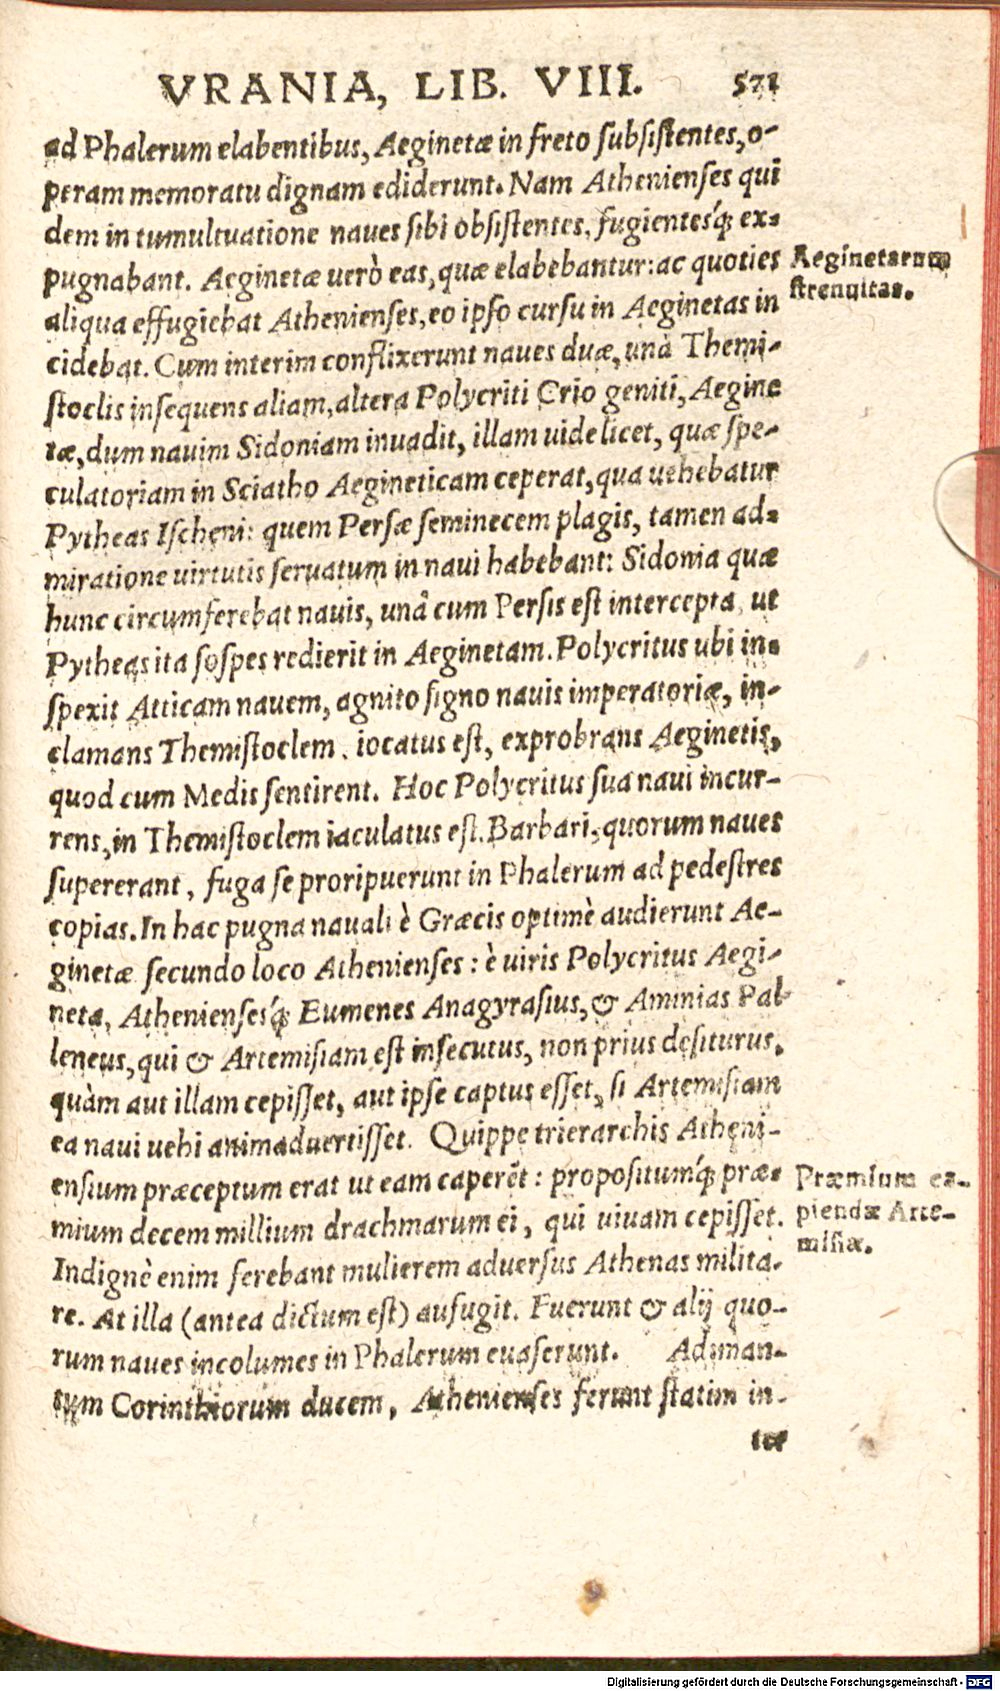 VRANIA, LIB. VIII. 571
ad Phalerum elabentibus, Aeginetæ in freto subsistentes, o-
peram memoratu dignam ediderunt. Nam Athenienses qui
dem in tumultuatione naues sibi obsistentes, fugientesq́ꝫ ex-
pugnabant. Aeginetæ uerò eas, quæ elabebantur: ac quoties
Aeginetarum
strenuitas.
aliqua effugiebat Athenienses, eo ipso cursu in Aeginetas in
cidebat. Cum interim conflixerunt naues duæ, unà Themi-
stoclis insequens aliam, altera Polycriti Crio geniti, Aegine
tæ, dum nauim Sidoniam inuadit, illam uidelicet, quæ spe-
culatoriam in Sciatho Aegineticam ceperat, qua uehebatur
Pytheas Ischeni: quem Persæ seminecem plagis, tamen ad-
miratione uirtutis seruatum in naui habebant: Sidonia quæ
hunc circumferebat nauis, unâ cum Persis est intercepta, ut
Pytheas ita sospes redierit in Aeginetam. Polycritus ubi in-
spexit Atticam nauem, agnito signo nauis imperatoriæ, in-
clamans Themistoclem, iocatus est, exprobrans Aeginetis,
quod cum Medis sentirent. Hoc Polycritus sua naui incur-
rens, in Themistoclem iaculatus est. Barbari, quorum naues
supererant, fuga se proripuerunt in Phalerum ad pedestres
copias. In hac pugna nauali è Græcis optimè audierunt Ae-
ginetæ secundo loco Athenienses: è uiris Polycritus Aegi-
neta, Atheniensesq́ꝫ Eumenes Anagyrasius, & Aminias Pal
leneus, qui & Artemisiam est insecutus, non prius desiturus,
quàm aut illam cepisset, aut ipse captus esset, si Artemisiam
ea naui uehi animaduertisset. Quippe trierarchis Atheni-
ensium præceptum erat ut eam caperẽt: propositumq́ꝫ præ-
Præmium ca-
piendæ Arte-
misiæ.
mium decem millium drachmarum ei, qui uiuam cepisset.
Indignè enim ferebant mulierem aduersus Athenas milita-
re. At illa (antea dictum est) aufugit. Fuerunt & alij quo-
rum naues incolumes in Phalerum euaserunt. Adiman-
tum Corinthiorum ducem, Athenienses ferunt statim in-
ter
Digitalisierung gefördert durch die Deutsche Forschungsgemeinschaft - DFG